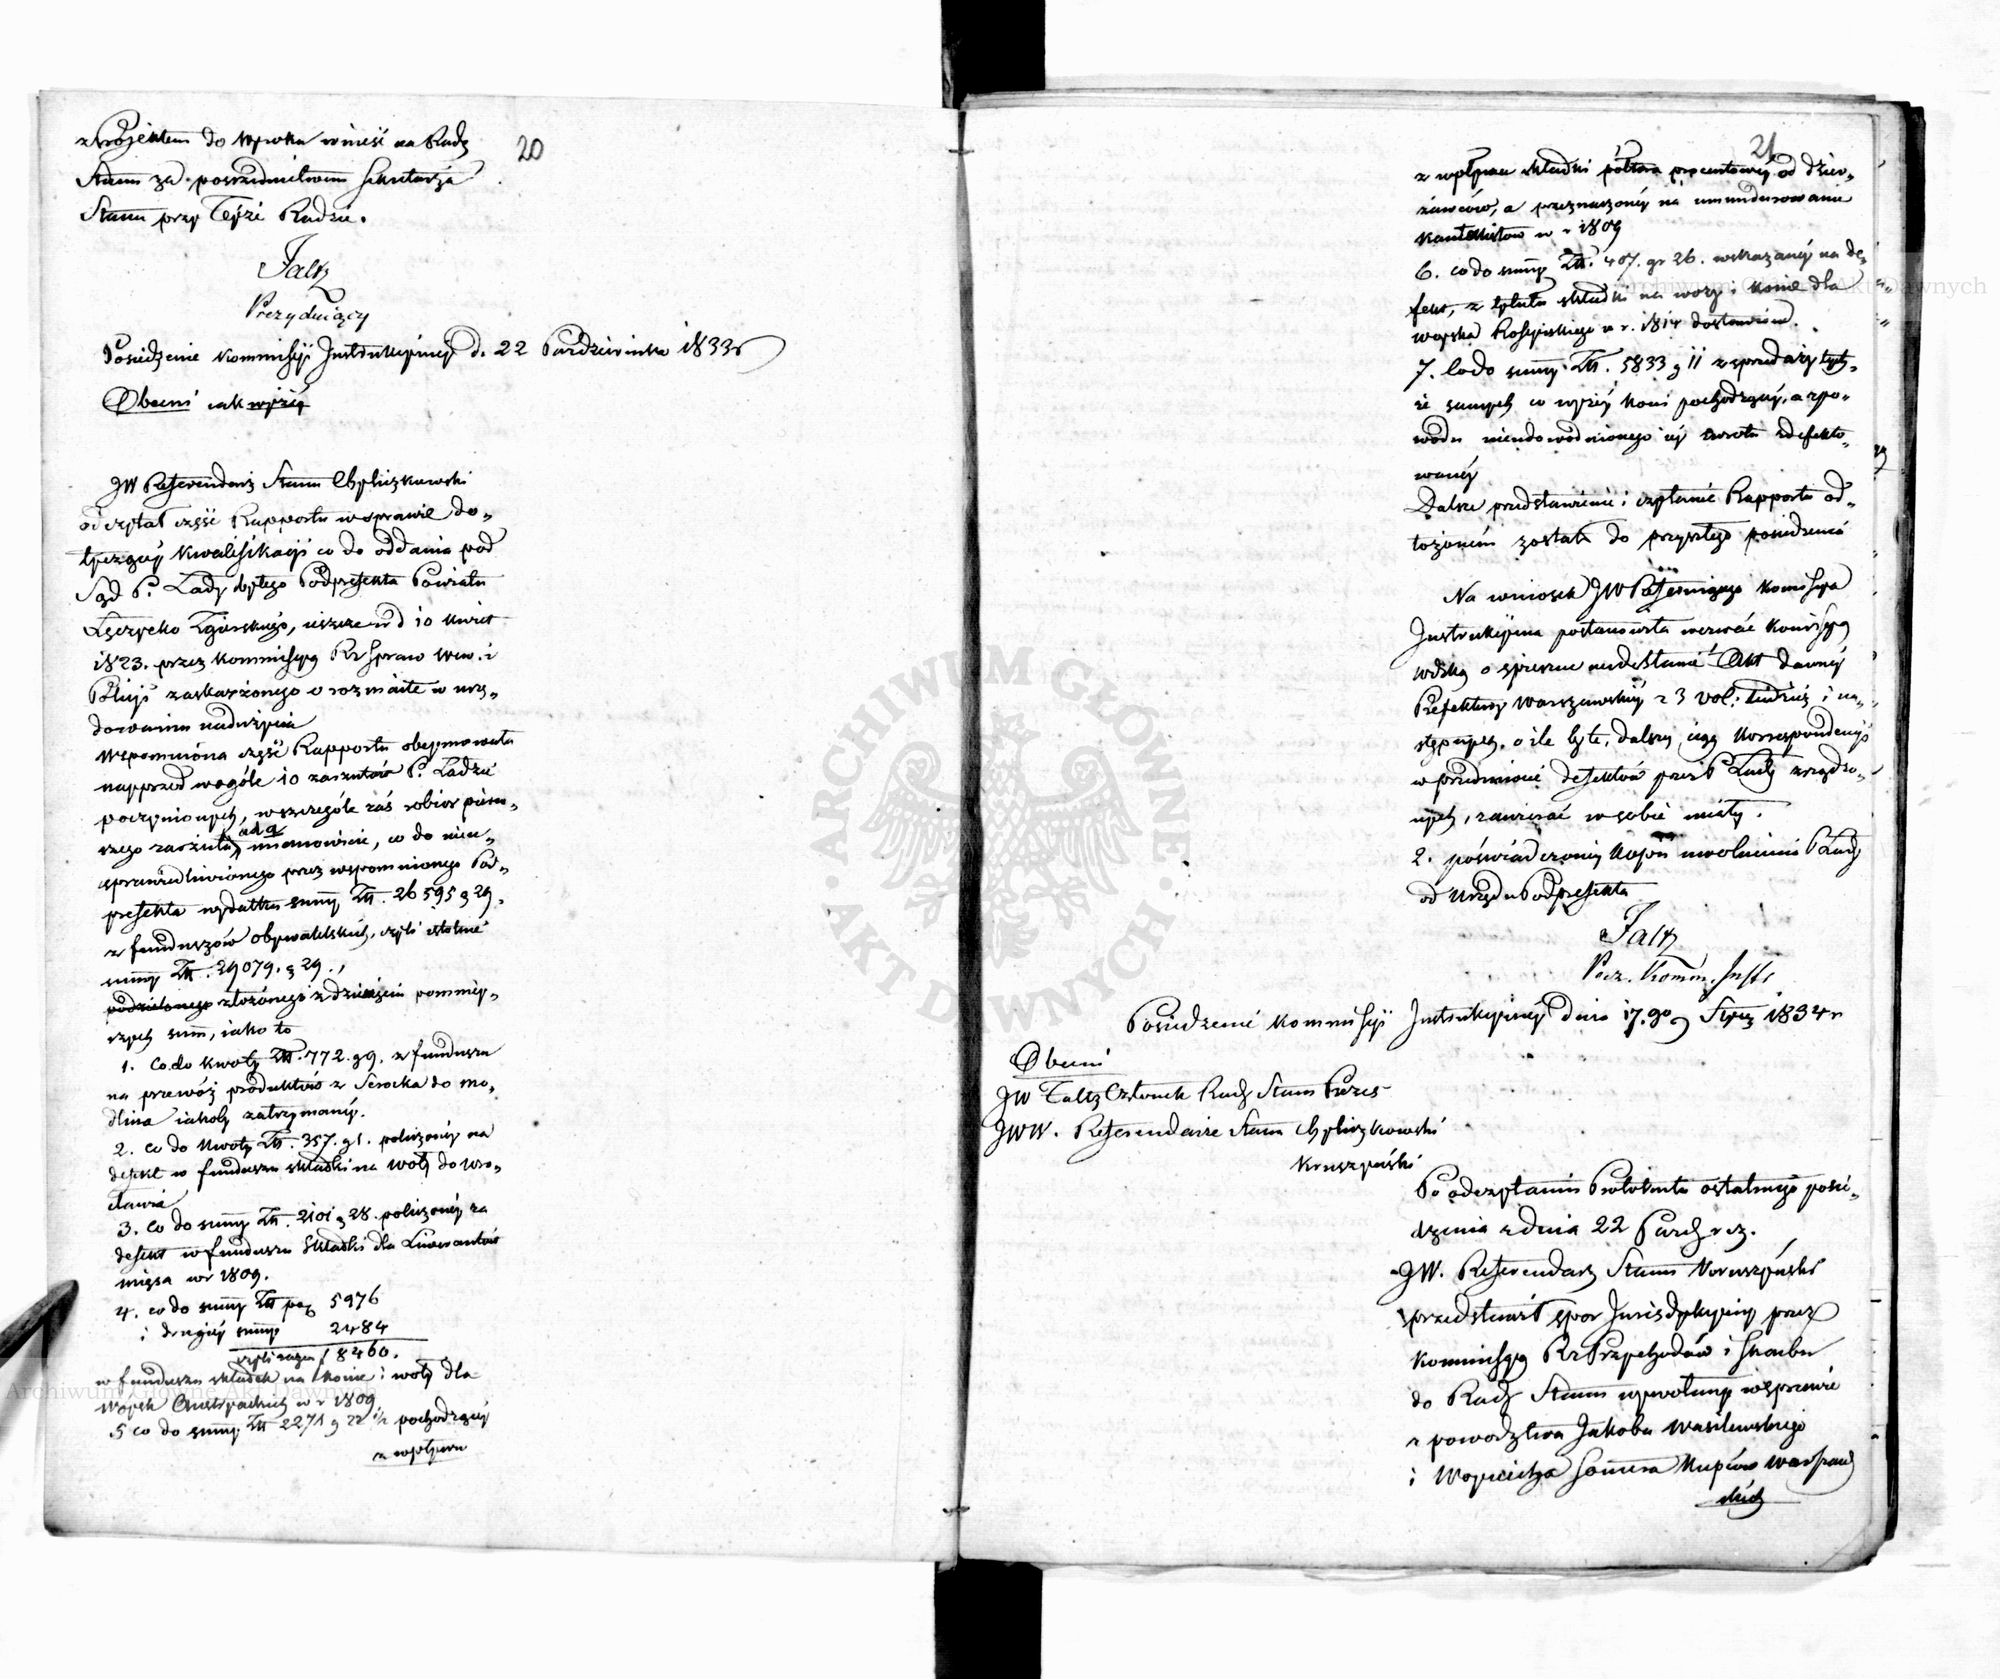 20
z Projektem do wyroku wnieść na Radę
Stanu za pośrednictwem Sekretarza
Stanu przy Tejże Radzie.
Faltz
Prezydujący
Posiedzenie Kommissyi Instrukcyjnej d. 22 Października 1833 r
Obecni jak wyżey
JW Referendarz Stanu Chyliczkowski
odczytał część Rapportu w sprawie do„
tyczącey kwalifikacyi co do oddania pod
Sąd P. Lady byłego Podprefekta Powiatu
Łęczycko Zgierskiego, ieszcze w d 10 kwiet
1823. przez Kommissyą Rz Spraw Wew. i
Policyi zaskarżonego o rozmaite w urzę„
dowaniu nadużycia
Wspomniona część Rapportu obeymowała
naprzod wogóle 10 zarzutów P. Ladzie
poczynionych, wszczególe zaś rozbior pierw„
szego zarzutu, ad a mianowicie, co do nieu„
sprawiedliwionego przez wspomnionego Pod„
prefekta wydatku summy Złł. 26595 g 29.
z funduszów obywatelskich, czyli istotnie
summy Złł. 29079. g 29.,
podzielonego złożonego z dziesięciu pomniey„
szych summ, iako to
1. Co do kwoty Złł. 772. g 9. z funduszu
na przewóz produktów z Serocka do Mo„
dlina iakoby zatrzymaney.
2. Co do kwoty Złł. 357. g 1. policzoney na
defekt w funduszu składki na woły do Wro„
cławia
3. Co do summy Złł. 2101 g 28. policzoney za
defekt w funduszu składki dla Liwerantów
mięsa w r 1809.
4. co do summy Złł 5976
i drugiey summy 2484
czyli razem 8460.
w funduszu składek na konie i woły dla
Woysk Austryackich w r 1809
5 co do summy Złł 2271 g 22 1/2 pochodzącey
z wpływu
21
z wpływu składki półtora procentowey od dzier„
żawców, a przeznaczoney na umundurowanie
kantonistow w r 1809
6. co do summy Złł. 407. gr 26. wskazaney na de„
fekt, z tytułu składki na worz. konie dla
woyska Rossyiskiego w r. 1814 dostawione.
7. Co do summy Złł. 5833 g 11 z sprzedaży tych„
że samych co wyżey koni pochodzącey, a z po„
wodu nieudowodnionego iey zwrotu zdefekto„
waney
Dalsze przedstawienie i czytanie Rapportu od„
łożonem zostało do przyszłego posiedzenia
Na wniosek JW Referuiącego Kommissya
Instrukcyjna postanowiła wezwać Kommissyą
wdzką o spieszne nadesłanie Akt dawney
Prefektury Warszawskiey z 3 vol. tudzież i na„
stępnych, o ile by te, dalszy ciąg korrespondencyi
w przedmiocie defektów przez P Ladę zrządzo„
nych, zawierać w sobie miały.
2. poświadczoney kopii uwolnienia P Lady
od Urzędu Podprefekta
Faltz
Prez. Komm. Instr
Posiedzenie Kommissyi Instrukcyjney dnia 17. go Stycz 1834 r
Obecni
JW Faltz Członek Rady Stanu Prezes
JWW. Referendarze Stanu Chyliczkowski
Kruszyński
Po odczytaniu Protokułu ostatniego posie„
dzenia z dnia 22 Paźdz r z.
JW. Referendarz Stanu Kruszyński
przedstawił spor Jurisdykcyiny przez
Kommissyą Rz Przychodów i Skarbu
do Rady Stanu wywołany w sprawie
z powodztwa Jakoba Wasilewskiego
i Woyciecha Somera Kupców Warszaw
skich
ARCHIWUM GŁÓWNE AKT DAWNYCH
Archiwum Główne Akt Dawnych
Archiwum Główne Akt Dawnych